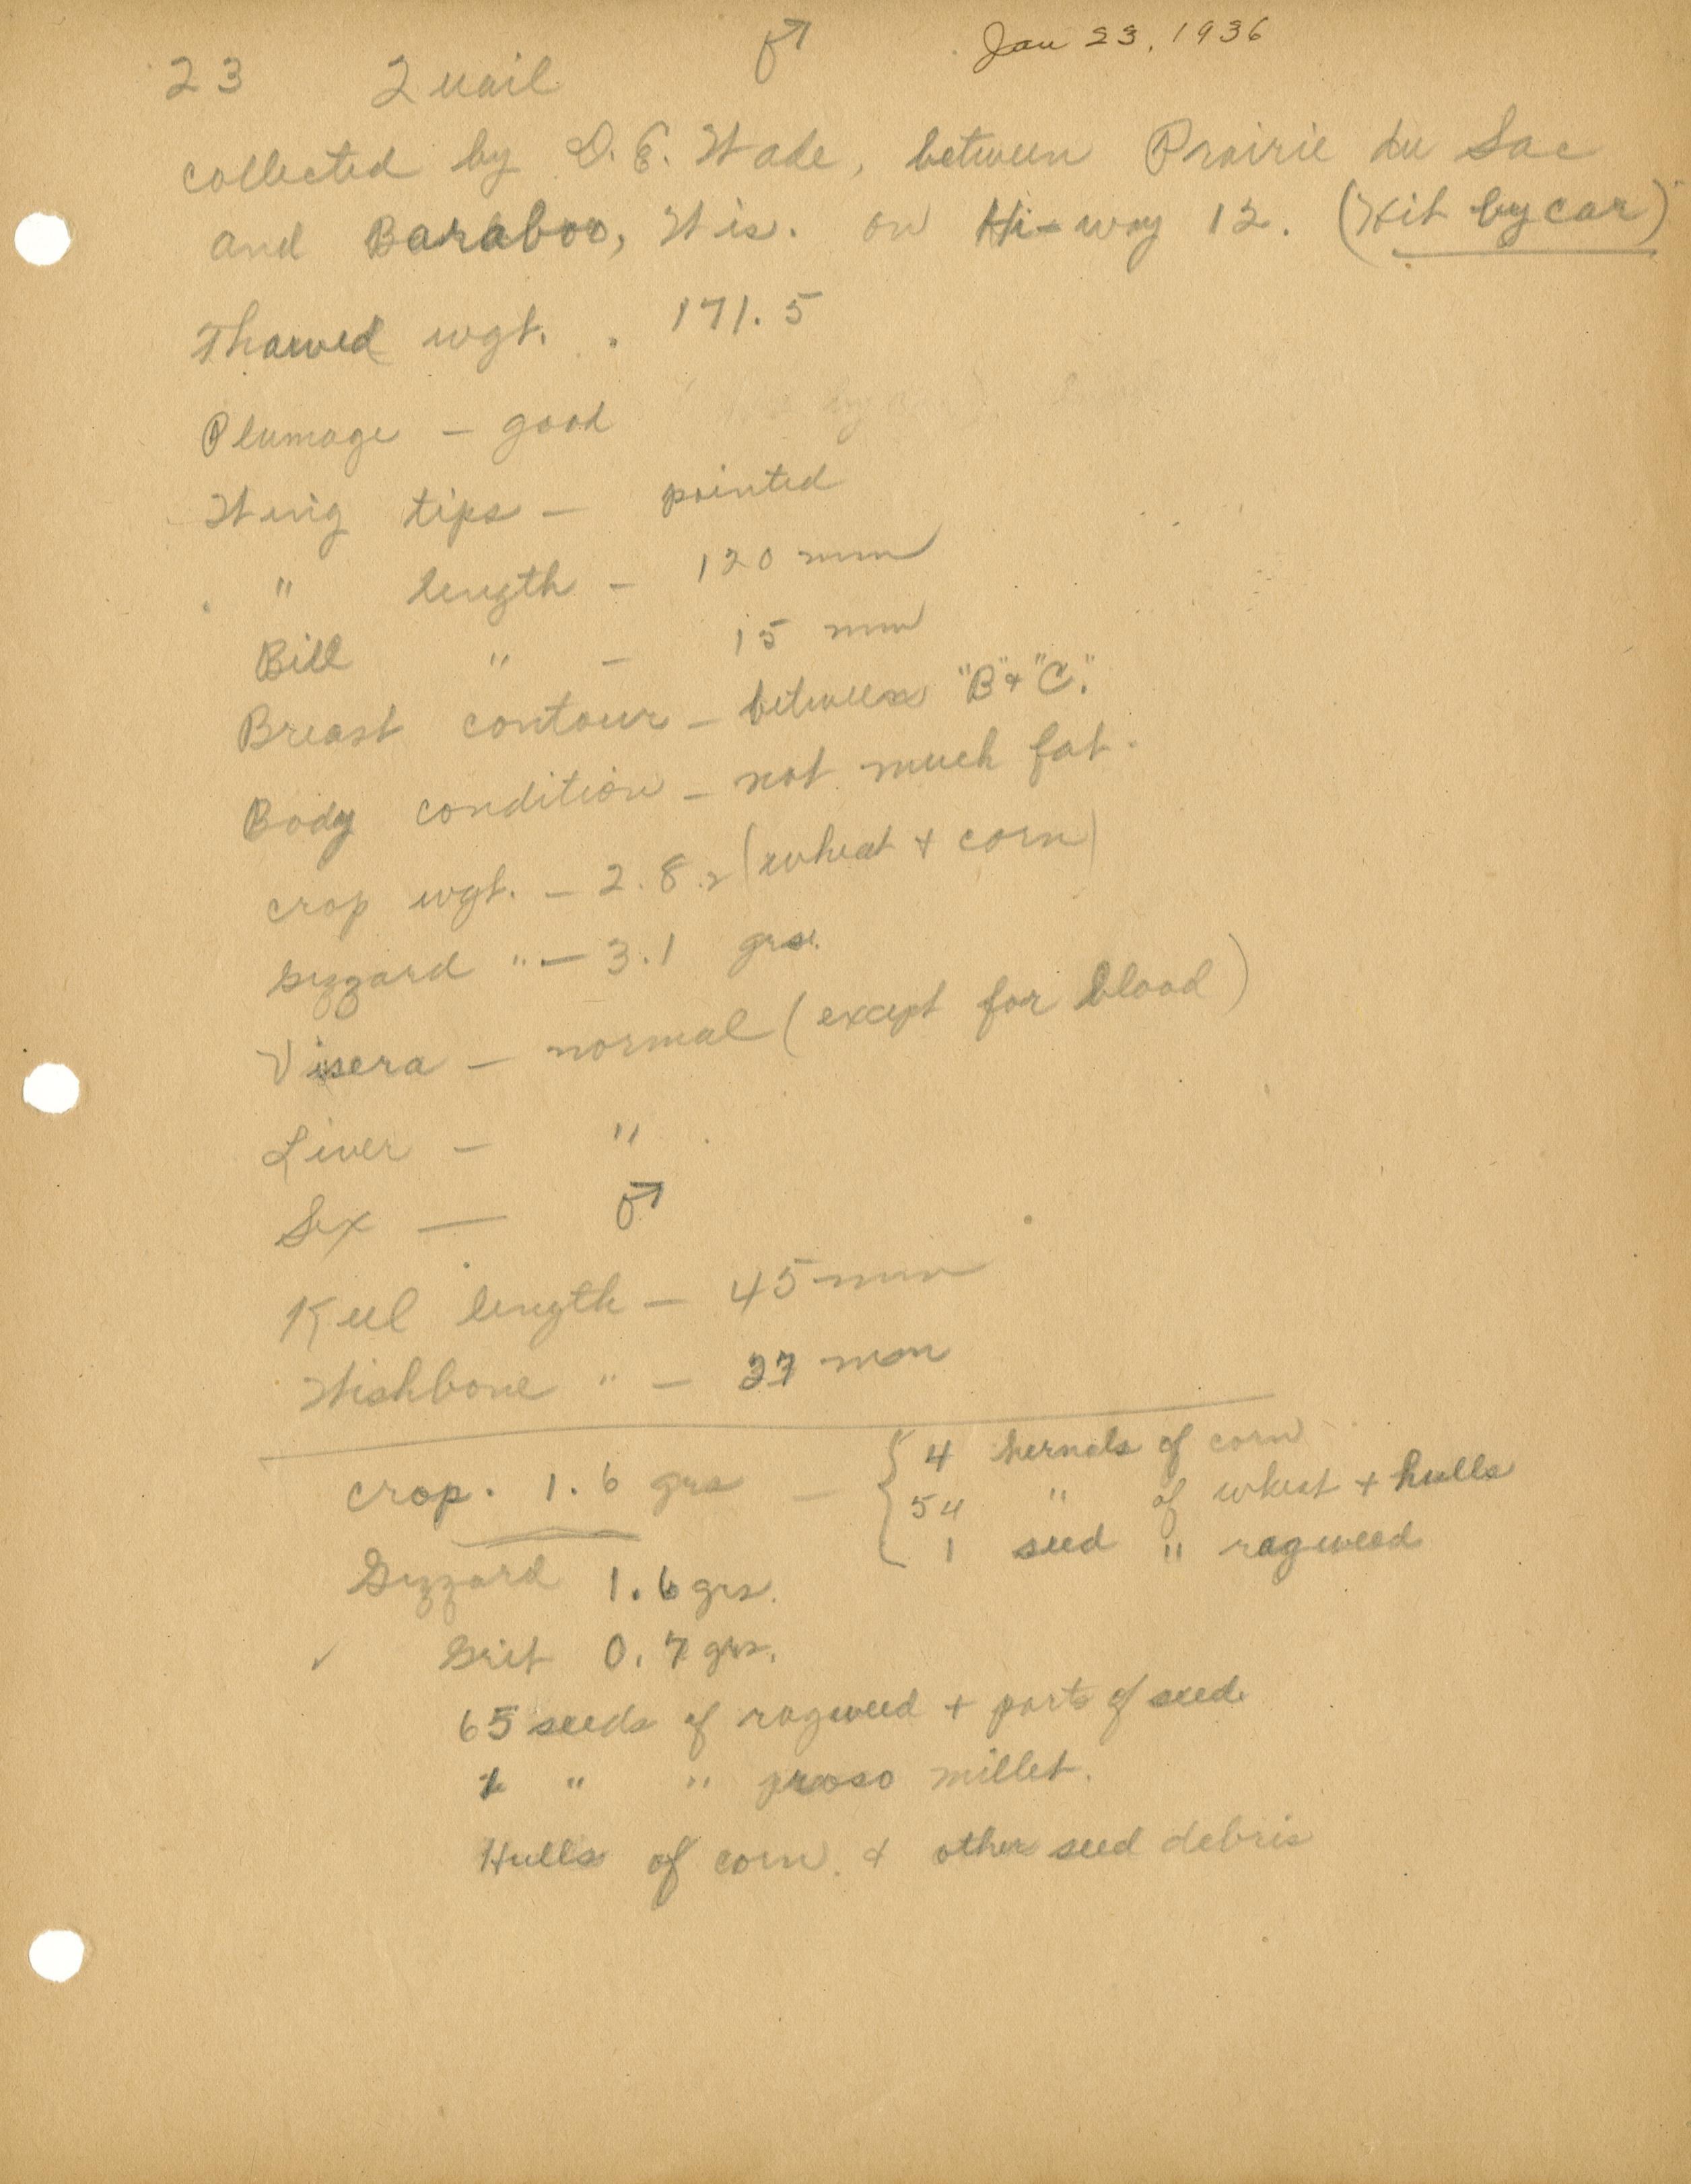 23 Quail ♂ Jan 23, 1936
collected by D.E. Wade, between Prairie du Sac
and Baraboo, Wis. on Hi-way 12. (Hit by car)
Thawed wgt. . 171.5
Plumage – good
Wing tips – pointed
" length – 120 mm
Bill " – 15 mm
Breast contour – between "B" + "C".
Body condition – not much fat.
crop wgt. – 2.8 (wheat + corn)
Gizzard " – 3.1 grs.
Visera – normal (except for blood)
Liver – "
Sex — ♂
Keel length – 45 mm
Wishbone " – mm
crop. 1.6 grs – { 4 kernels of corn
54 " of wheat + hulls
1 seed " ragweed
Gizzard 1.6 grs.
✓ Grit 0.7 grs.
65 seeds of ragweed + parts of seed
" " proso millet.
Hulls of corn & other seed debris